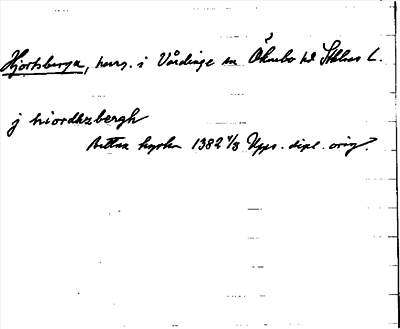 Hjortsberga, herrg. i Vårdinge sn Öknebo hd Sthlms L.
j hiordzbergh
kyrka 1382 4/3 Upps. dipl. orig.